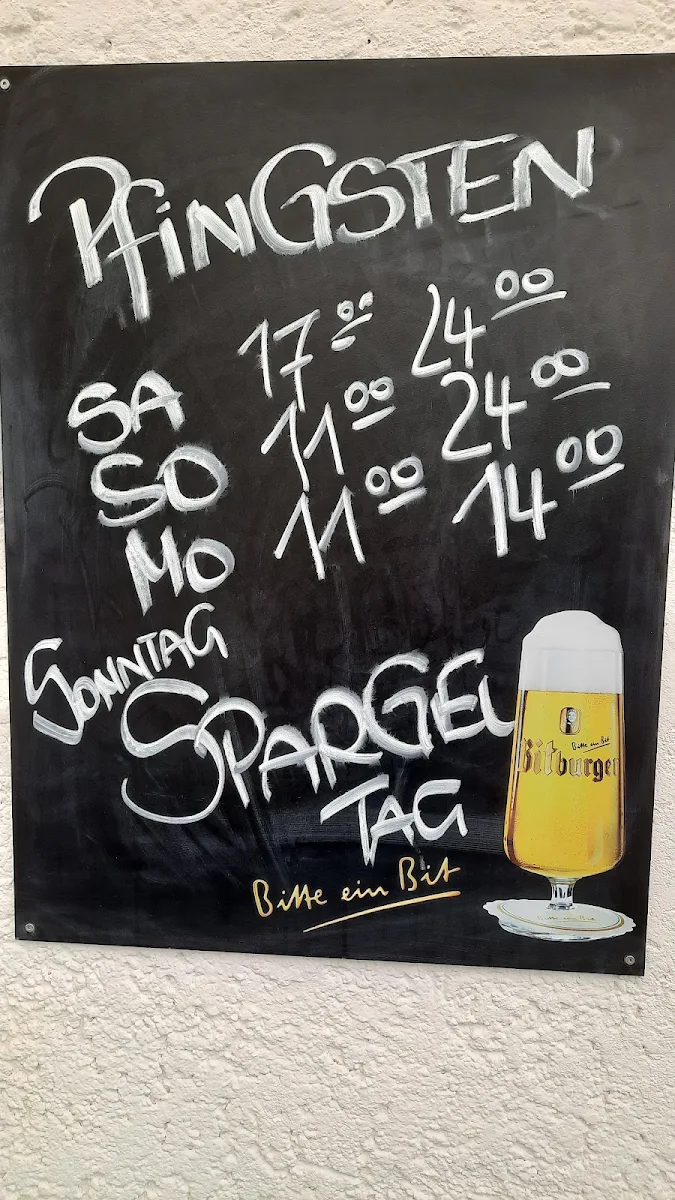 PfiNGSTEN
SA 17⁰⁰ 24⁰⁰
SO 11⁰⁰ 24⁰⁰
MO 11⁰⁰ 14⁰⁰
SONNTAG
SPARGEL
TAG
Bitte ein Bit
Bitte ein Bit
Bitburger
Bitte ein Bit